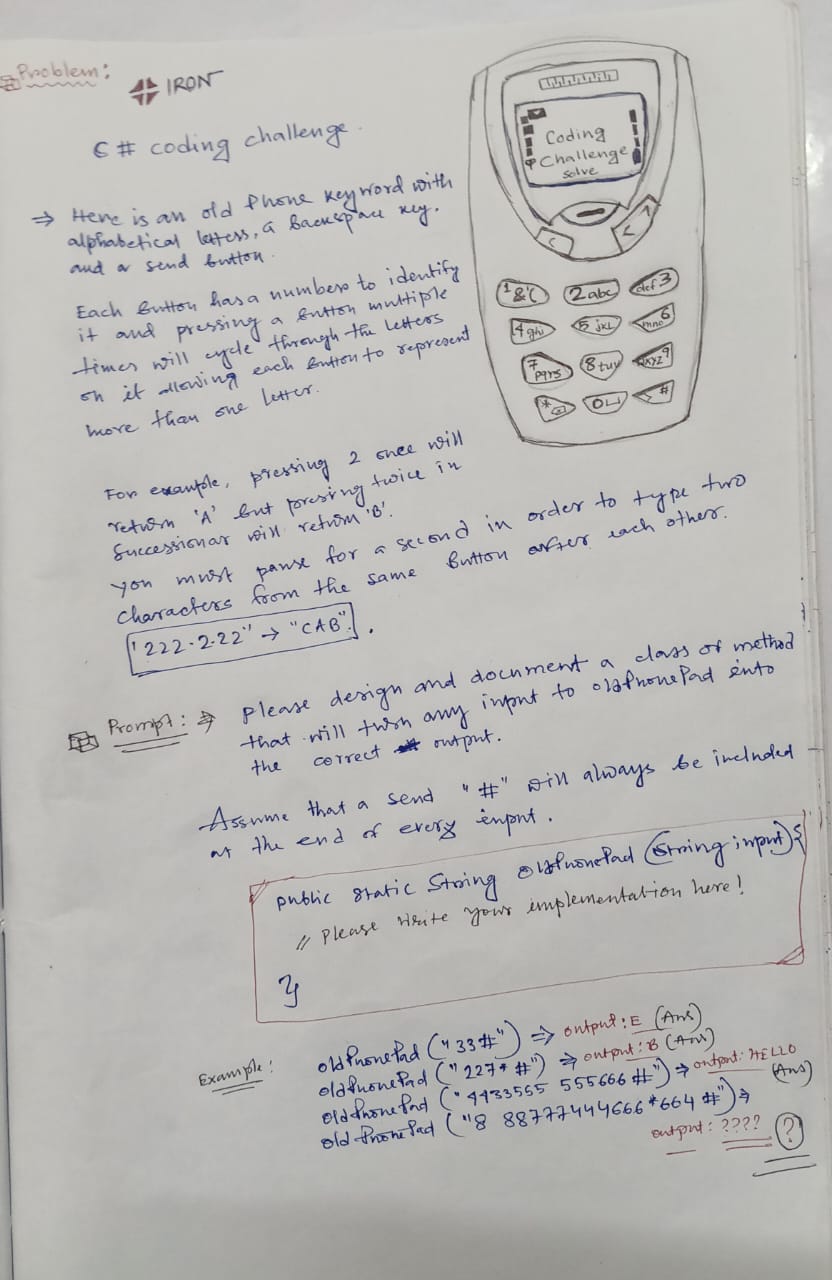 Problem:
IRON
C# coding challenge.
⇒ Here is an old Phone keyword with
alphabetical letters, a backspace key.
and a send button.
Each button has a numbers to identify
it and pressing a button multiple
times will cycle through the letters
on it allowing each button to represent
more than one letter.
For example, pressing 2 once will
return 'A' but pressing twice in
Successionar will return 'B'.
you must pause for a second in order to type two
characters from the same button after each other.
"222-2-22" → "CAB".
Coding
Challenge
solve
1&'(
2abc
def3
4ghi
5jkl
mno6
7pqrs
8tuv
wxyz9
*
0
#
Prompt: ⇒ please design and document a class of method
that will turn any input to oldPhonePad into
the correct output.
Assume that a send "#" will always be included
at the end of every input.
public static String oldPhonePad (String input){
// Please write your implementation here!
}
Example:
oldPhonePad ("33#") ⇒ output: E (Ans)
oldPhonePad ("227* #") ⇒ output: B (Ans)
oldPhonePad ("4433555 555666 #") ⇒ output: HELLO (Ans)
old PhonePad ("8 88777444666*664 #") ⇒
output: ???? ?